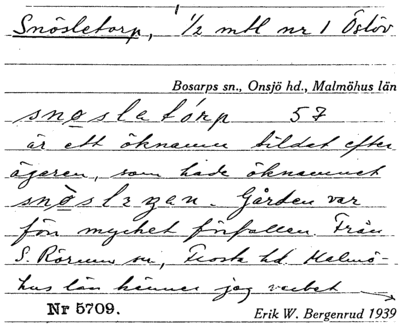 Snösletorp, 1/2 mtl nr 1 Östöv
Bosarps sn., Onsjö hd., Malmöhus län
snøslatórp 57
är ett öknamn bildat efter
ägaren, som hade öknamnet
snøslezan. Gården var
förr mycket förfallen. Från
S. Rörum sn, Frosta hd. Malmö-
hus län känner jag verbet →
Nr 5709.
Erik W. Bergenrud 1939